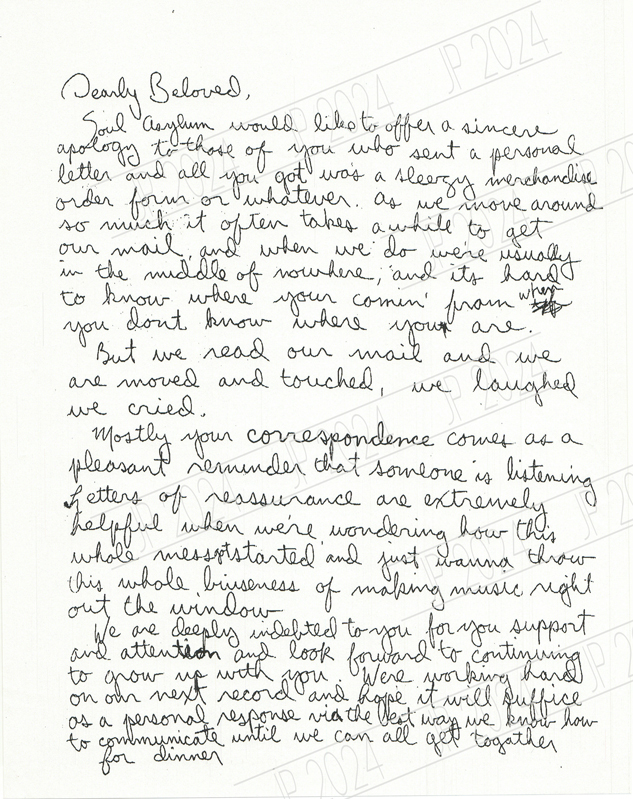 Dearly Beloved,
Soul Asylum would like to offer a sincere
apology to those of you who sent a personal
letter and all you got was a sleezy merchandise
order form or whatever. As we move around
so much it often takes a while to get
our mail, and when we do we're usually
in the middle of nowhere, and its hard
to know where your comin' from when
you dont know where you are.
But we read our mail and we
are moved and touched, we laughed
we cried.
Mostly your correspondence comes as a
pleasant reminder that someone is listening
Letters of reassurance are extremely
helpful when we're wondering how this
whole mess started and just wanna throw
this whole biuseness of making music right
out the window
We are deeply indebted to you for you support
and attention and look forward to continuing
to grow up with you. We're working hard
on our next record and hope it will suffice
as a personal response via the best way we know how
to communicate until we can all get togather
for dinner
JP 2024